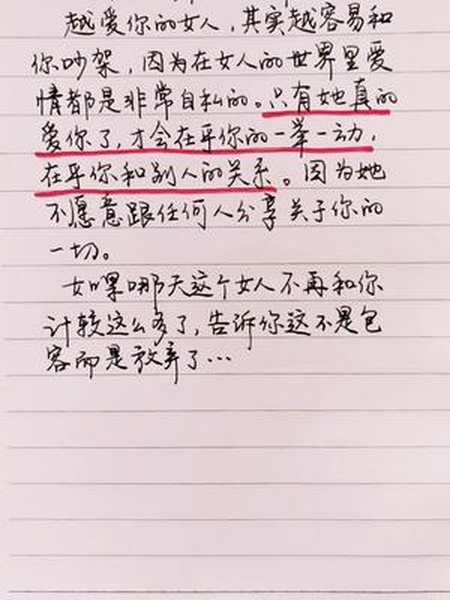 越爱你的女人，其实越容易和
你吵架，因为在女人的世界里爱
情都是非常自私的。只有她真的
爱你了，才会在乎你的一举一动，
在乎你和别人的关系。因为她
不愿意跟任何人分享关于你的
一切。
如果哪天这个女人不再和你
计较这么多了，告诉你这不是包
容而是放弃了…